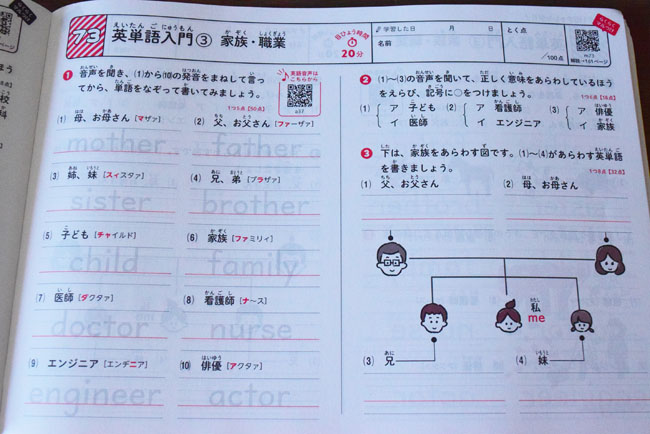 73 英単語入門③ 家族・職業
えいたんごにゅうもん かぞく しょくぎょう
目ひょう時間
20分
学習した日 月 日
名前
とく点
/100点
解説→191ページ
らくらくマルつけ
1 音声を聞き、(1)から(10)の発音をまねて言っ
てから、単語をなぞって書いてみましょう。
1つ5点【50点】
英語音声はこちらから
(1) 母、お母さん [マザァ]
mother
(2) 父、お父さん [ファーザァ]
father
(3) 姉、妹 [スィスタァ]
sister
(4) 兄、弟 [ブラザァ]
brother
(5) 子ども [チャイルド]
child
(6) 家族 [ファミリィ]
family
(7) 医師 [ダクタァ]
doctor
(8) 看護師 [ナ〜ス]
nurse
(9) エンジニア [エンヂニア]
engineer
(10) 俳優 [アクタァ]
actor
2 (1)〜(3)の音声を聞いて、正しく意味をあらわしているほう
をえらび、記号に○をつけましょう。
1つ6点【18点】
(1) ア 子ども
イ 医師
(2) ア 看護師
イ エンジニア
(3) ア 俳優
イ 家族
3 下は、家族をあらわす図です。(1)〜(4)があらわす英単語
を書きましょう。
1つ8点【32点】
(1) 父、お父さん
(2) 母、お母さん
わたし
私
me
(3) 兄
(4) 妹